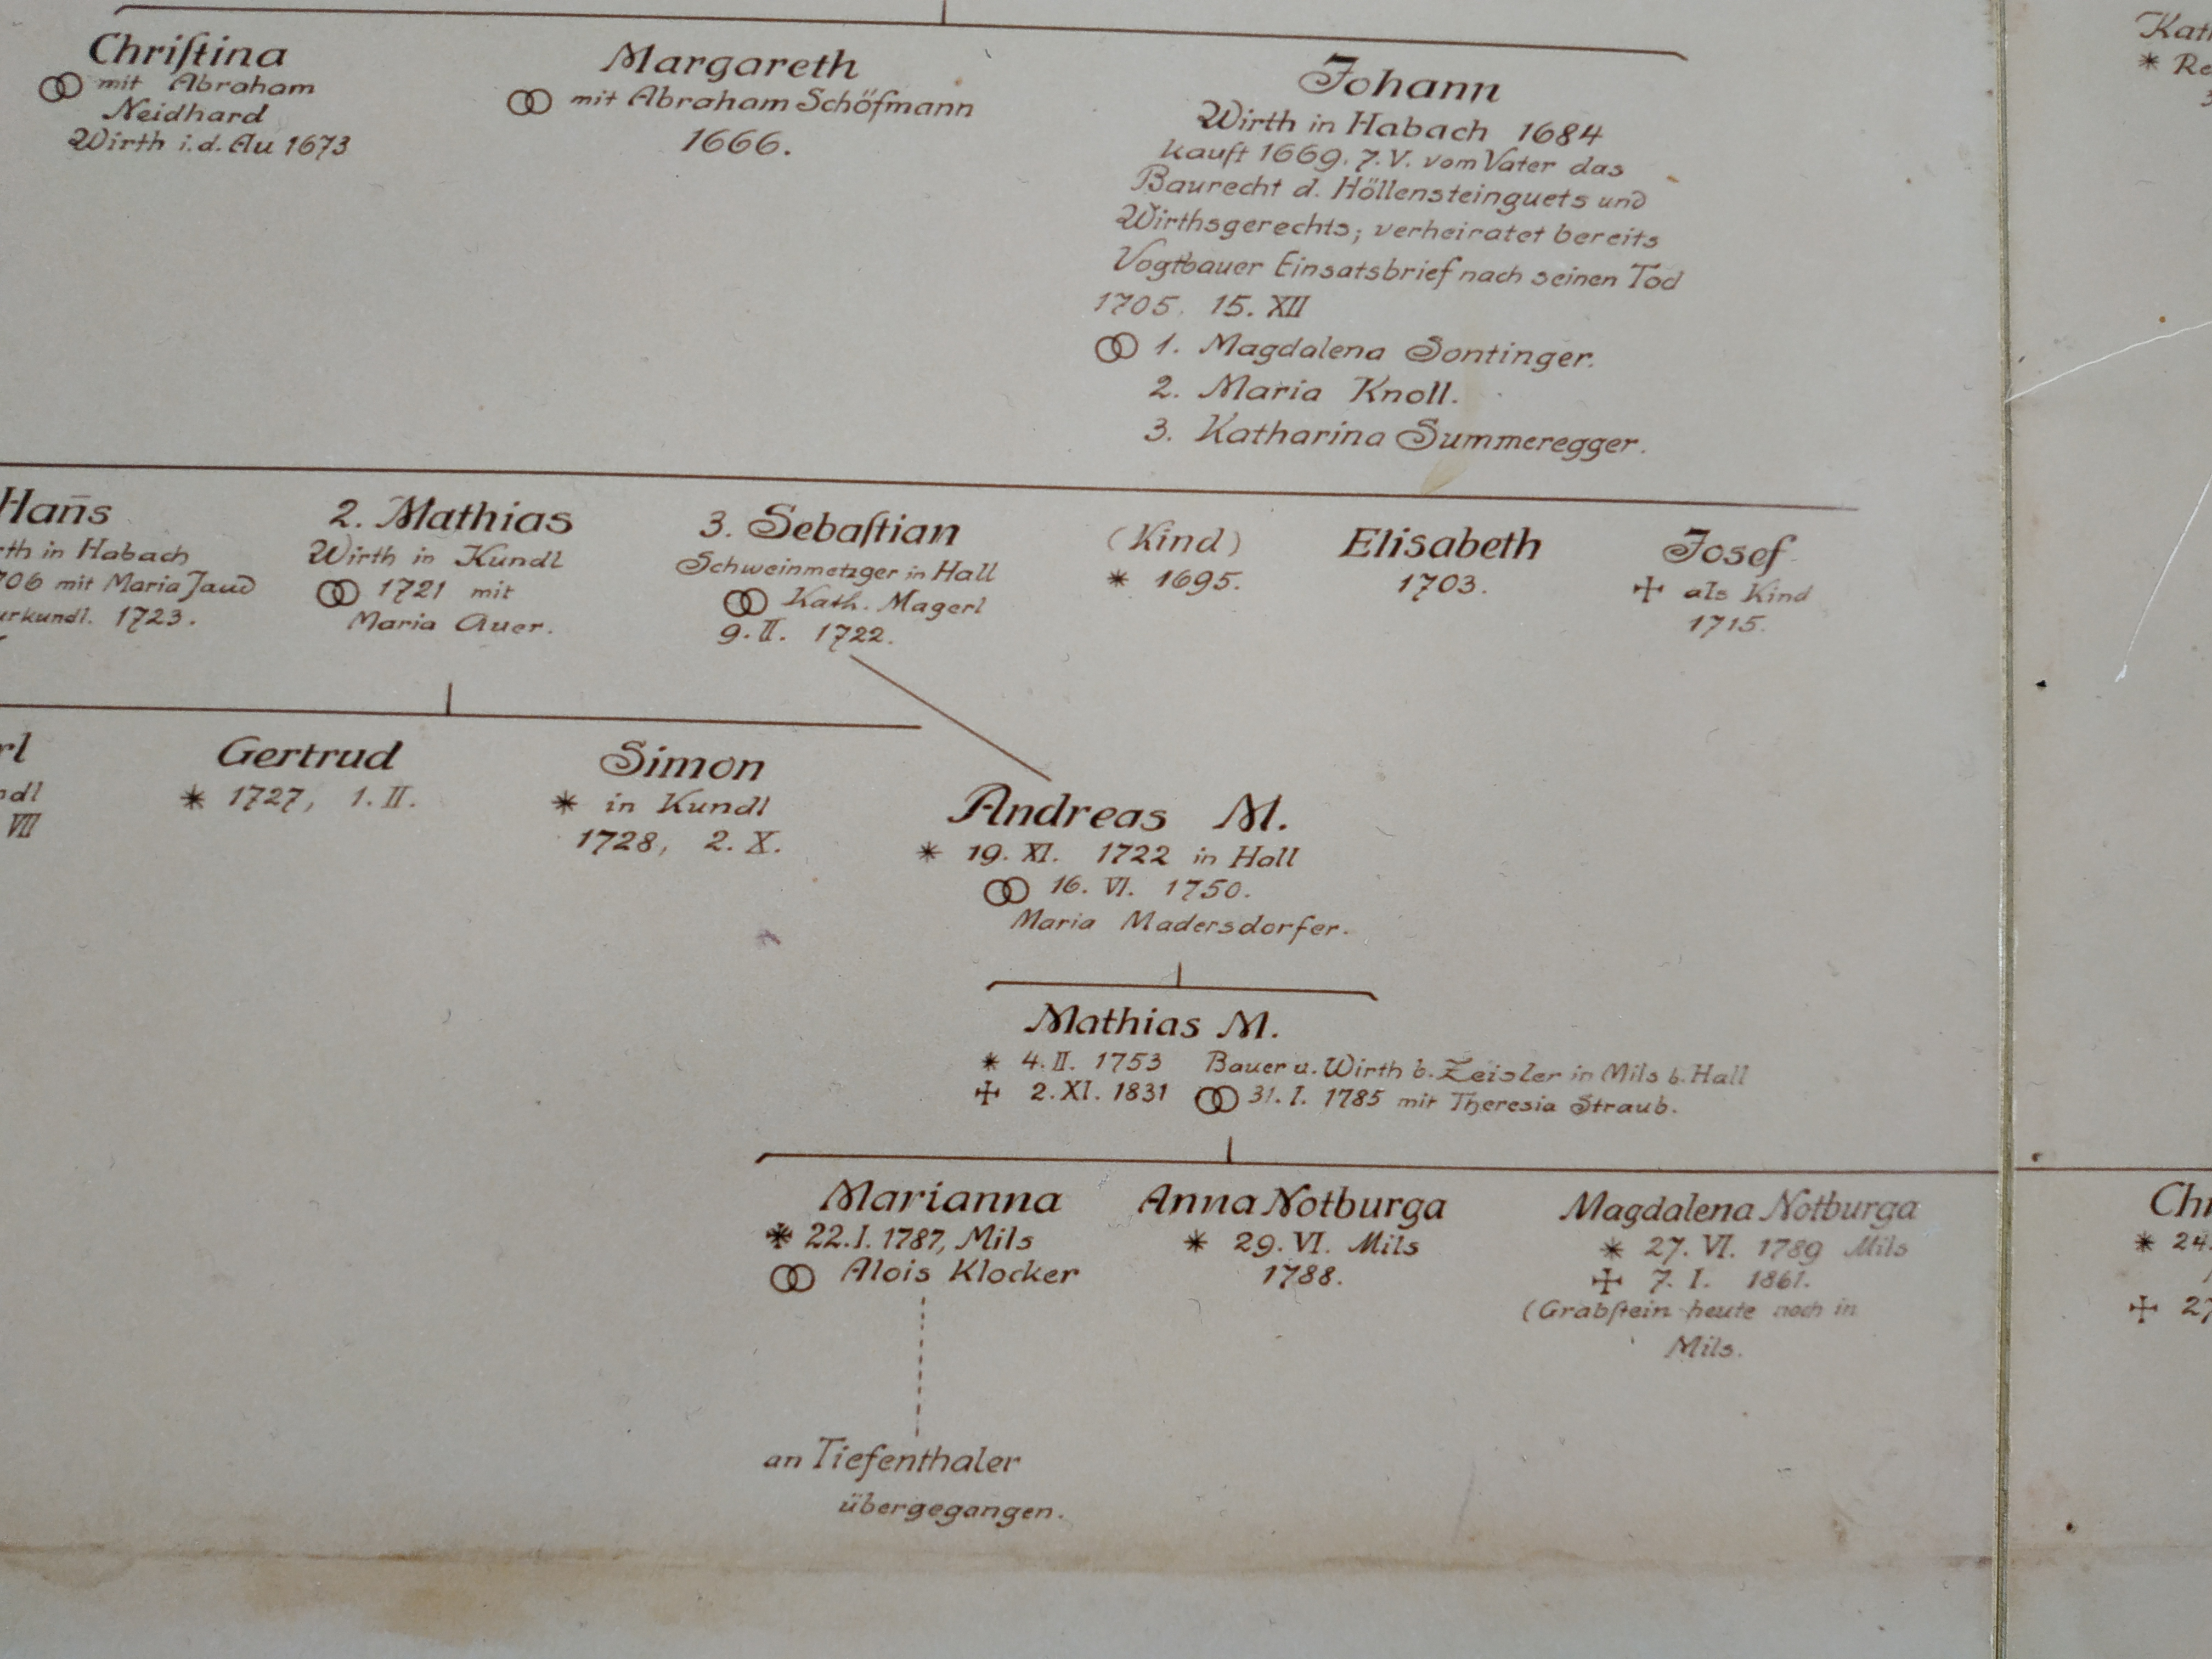 Chriſtina
mit Abraham
Neidhard
Wirth i.d. Au 1673
Margareth
mit Abraham Schöfmann
1666.
Johann
Wirth in Habach 1684
kauft 1669. 7.V. vom Vater das
Baurecht d. Höllensteinguets und
Wirthsgerechts; verheiratet bereits
Vogtbauer Einsatsbrief nach seinen Tod
1705, 15. XII
1. Magdalena Sontinger.
2. Maria Knoll.
3. Katharina Summeregger.
Han̄s
in Habach
mit Maria Jaud
1723.
2. Mathias
Wirth in Kundl
1721 mit
Maria Auer.
3. Sebaſtian
Schweinmetzger in Hall
Kath. Magerl
9. II. 1722.
(Kind)
* 1695.
Elisabeth
1703.
Josef
✢ als Kind
1715.
VII
Gertrud
* 1727, 1. II.
Simon
* in Kundl
1728, 2. X.
Andreas M.
* 19. XI. 1722 in Hall
16. VI. 1750.
Maria Madersdorfer.
Mathias M.
* 4. II. 1753 Bauer u. Wirth b. Zeisler in Mils b. Hall
✢ 2. XI. 1831 31. I. 1785 mit Theresia Straub.
Marianna
* 22. I. 1787, Mils
Alois Klocker
an Tiefenthaler
übergegangen.
Anna Notburga
* 29. VI. Mils
1788.
Magdalena Notburga
* 27. VI. 1789 Mils
✢ 7. I. 1861.
(Grabſtein heute noch in
Mils.
* 24.
✢ 27